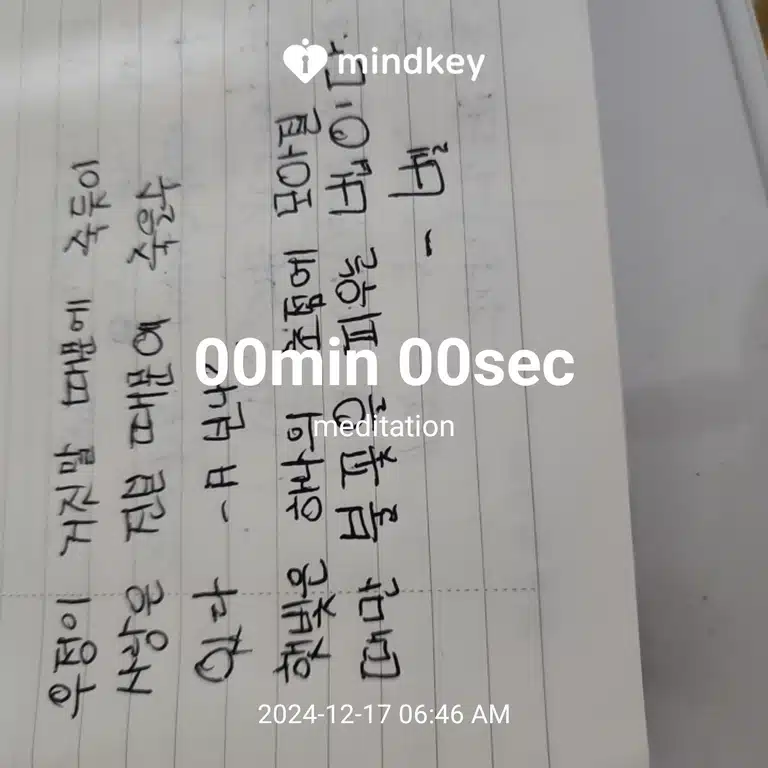 mindkey
우정이 거진말 때문에 죽듯이
사랑은 진실 때문에 죽을수
있다
햇빛은 하나의 초점에 모아질
때만 불꽃을 피우는 법이다
- 벨
00min 00sec
meditation
2024-12-17 06:46 AM